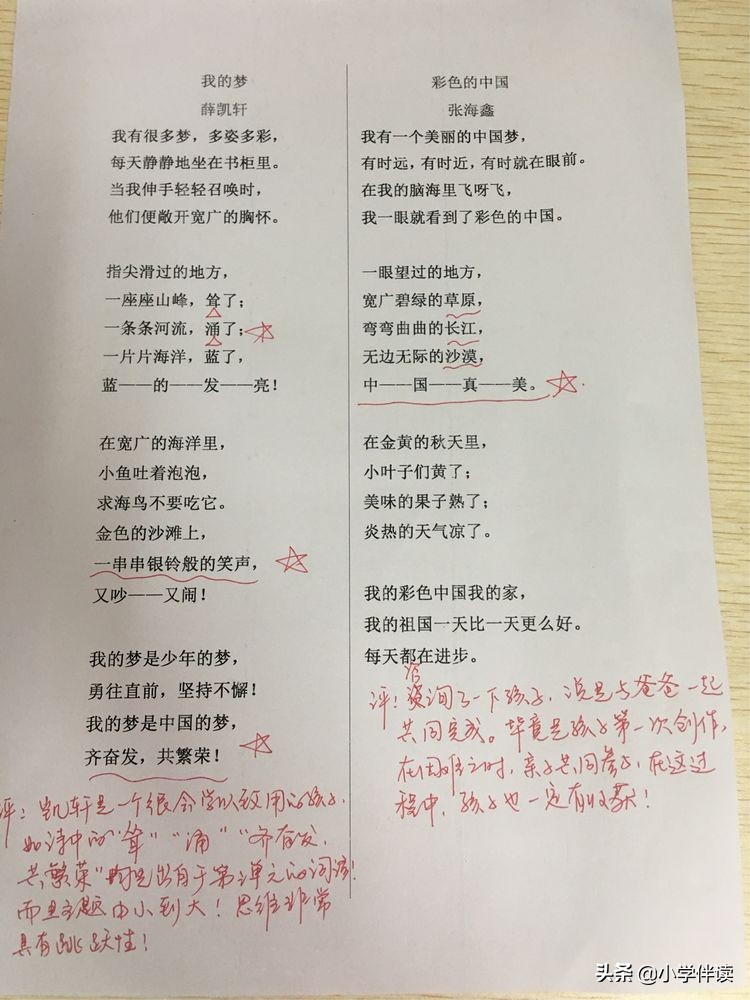 我的梦
薛凯轩
我有很多梦，多姿多彩，
每天静静地坐在书柜里。
当我伸手轻轻召唤时，
他们便敞开宽广的胸怀。
指尖滑过的地方，
一座座山峰，耸了；
一条条河流，涌了；
一片片海洋，蓝了，
蓝——的——发——亮！
在宽广的海洋里，
小鱼吐着泡泡，
求海鸟不要吃它。
金色的沙滩上，
一串串银铃般的笑声，
又吵——又闹！
我的梦是少年的梦，
勇往直前，坚持不懈！
我的梦是中国的梦，
齐奋发，共繁荣！
评：凯轩是一个很会学以致用的孩子，
如诗中的“耸”“涌”“齐奋发，
共繁荣”均是出自于第2单元的词语！
而且主题由小到大！思维非常
具有跳跃性！
彩色的中国
张海鑫
我有一个美丽的中国梦，
有时远，有时近，有时就在眼前。
在我的脑海里飞呀飞，
我一眼就看到了彩色的中国。
一眼望过的地方，
宽广碧绿的草原，
弯弯曲曲的长江，
无边无际的沙漠，
中——国——真——美。
在金黄的秋天里，
小叶子们黄了；
美味的果子熟了；
炎热的天气凉了。
我的彩色中国我的家，
我的祖国一天比一天更么好。
每天都在进步。
评：咨询了一下孩子，说是与爸爸一起
共同完成。毕竟是孩子第一次创作，
在困难之时，亲子共同参与，在这过
程中，孩子也一定有收获！
头条 @小学伴读